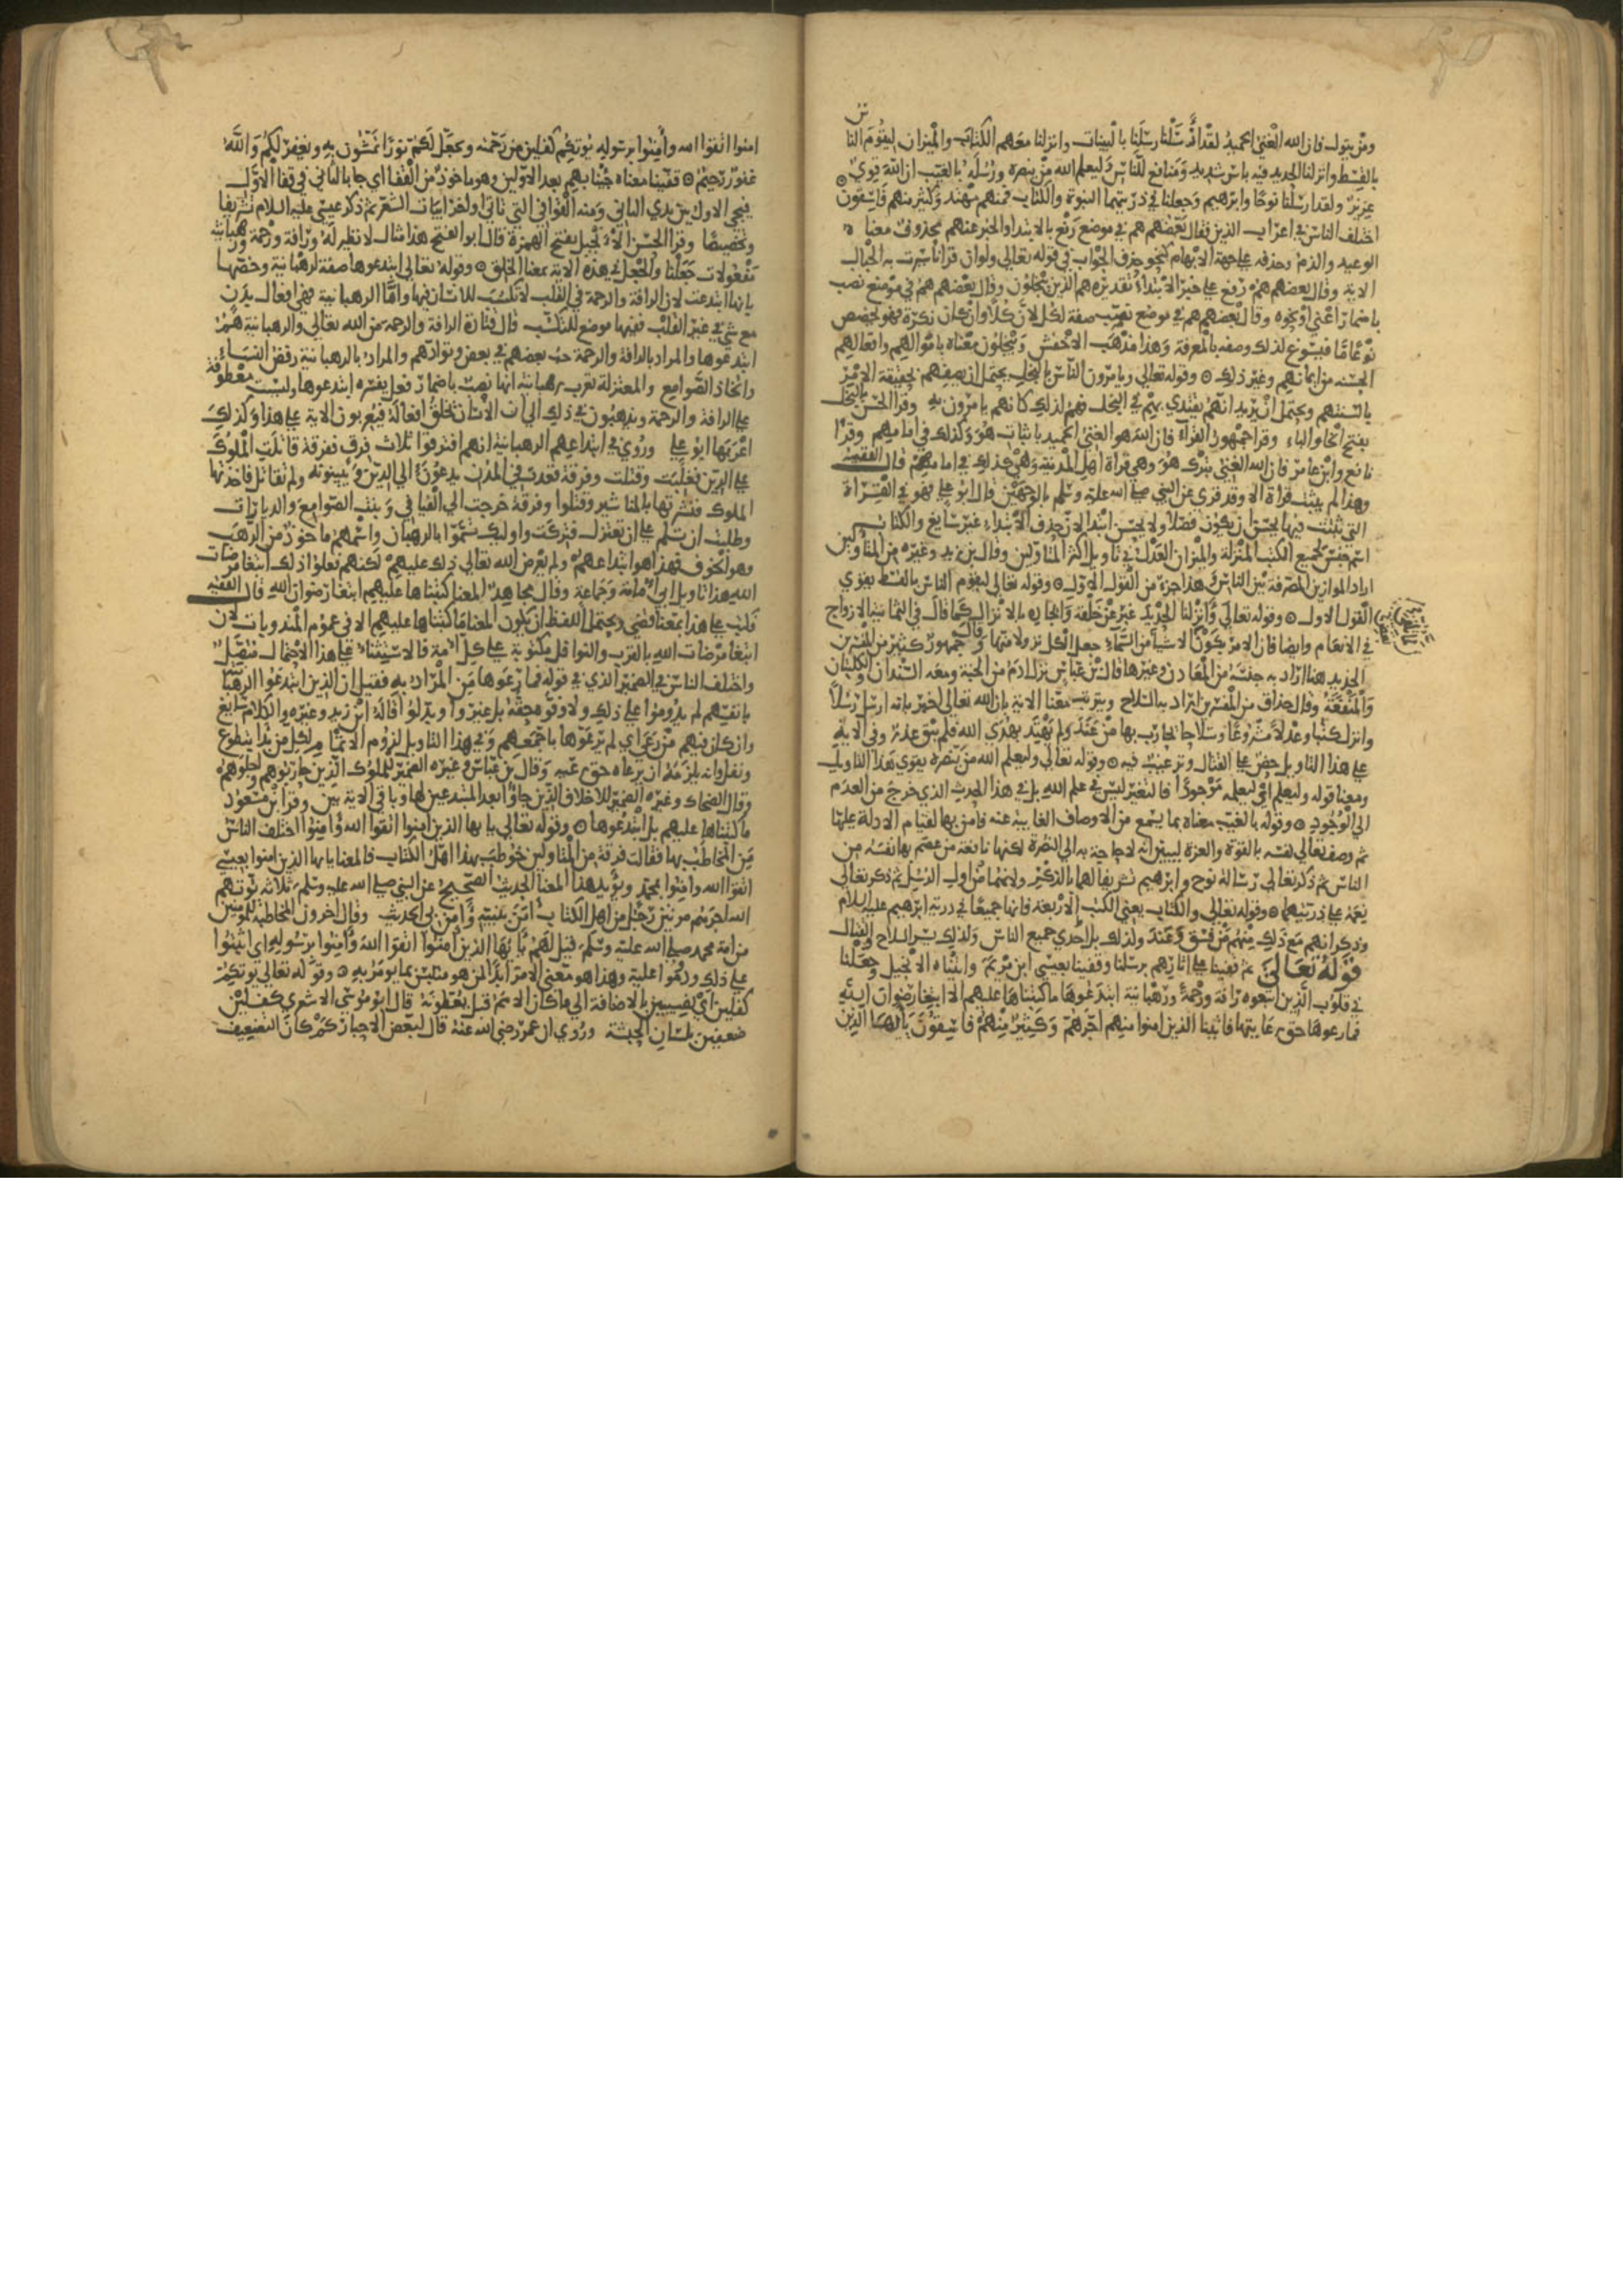 ومن يتول فان الله الغني الحميد لقد ارسلنا رسلنا بالبينات وانزلنا معهم الكتاب والميزان ليقوم النا
س
بالقسط وانزلنا الحديد فيه باس شديد ومنافع للناس وليعلم الله من ينصره ورسله بالغيب ان الله قوي
عزيز ولقد ارسلنا نوحا وابرهيم وجعلنا في ذريتهما النبوة والكتاب فمنهم مهتد وكثير منهم فاسقون
اختلف الناس في اعراب الذين فقال بعضهم هم في موضع رفع بالابتدا والخبر عنهم محذوف معناه
الوعيد والذم وحذفه على جهة الابهام كنحو حذف الجواب في قوله تعالى ولو ان قرانا سيرت به الجبال
الاية وقال بعضهم هم رفع على خبر الابتداء تقديره هم الذين يبخلون وقال بعضهم هم في موضع نصب
باضمار اعني او نحوه وقال بعضهم هم في موضع نصب صفة لكل لان كلا وان كان نكرة فهو يخصص
نوعا ما فيسوغ لذلك وصفه بالمعرفة وهذا مذهب الاخفش ويبخلون معناه باموالهم وافعالهم
الحسنة من ايمانهم وغير ذلك وقوله تعالى ويامرون الناس بالبخل يحتمل ان يصفهم بحقيقة الامر
بالسنتهم ويحتمل ان يريد انهم يقتدى بهم في البخل فهم لذلك كانهم يامرون به وقرا الحسن بالبخل
بفتح الخا والباء وقرا جمهور القراء فان الله هو الغني الحميد باثبات هو وكذلك في امامهم وقرا
نافع وابن عامر فان الله الغني بترك هو وهي قراة اهل المدينة وهي كذلك في امامهم قال الفقيه
وهذا لم يثبت قراة الا وقد قرى عن النبي صلى الله عليه وسلم بالوجهين قال ابو علي فهو في القراة
التي ثبتت فيها يحسن ان يكون فصلا ولا يحسن ابتدا لان حذف الابتداء غير سايغ والكتاب
اسم جنس لجميع الكتب المنزلة والميزان العدل في تاويل اكثر المتاولين وقال بن زيد وغيره من المتاولين
اراد الموازين المصرفة بين الناس وهذا جزء من القول الاول وقوله تعالى ليقوم الناس بالقسط يقوي
القول الاول وقوله تعالى وانزلنا الحديد عبر عن خلقه وايجاده بالانزال كما قال في الثمانية الازواج
في الانعام وايضا فان الامر بكون الاشيا من السماء جعل الكل نزولا منها وقال جمهور كثير من المفسرين
الحديد هنا اراد به جنسه من المعادن وغيرها قال بن عباس نزل ادم من الجنة ومعه السندان والكلبتان
والمنفعة وقال حذاق من المفسرين اراد به السلاح ويترتب معنا الاية بان الله تعالى اخبر بانه ارسل رسلا
وانزل كتبا وعدلا مشروعا وسلاحا يحارب بها من عند ولم يهتد بهدي الله فلم يبق عذر وفي الاية
على هذا التاويل حض على القتال وترغيب فيه وقوله تعالى وليعلم الله من ينصره يقوي هذا التاويل
ومعنا قوله وليعلم اي ليعلمه موجودا فالتغير ليس في علم الله بل في هذا الحدث الذي خرج من العدم
الى الوجود وقوله بالغيب معناه بما يسمع من الاوصاف الغايبة عنه فامن بها لقيام الادلة عليها
ثم وصف تعالى نفسه بالقوة والعزة ليبين انه لا حاجة به الى النصرة لكنها نافعة من عصم بها نفسه من
الناس ثم ذكر تعالى رسالة نوح وابرهيم تشريفا لهما بالذكر ولانهما من اول الرسل ثم ذكر تعالى
نعمه على ذريتهما وقوله تعالى والكتاب يعني الكتب الاربعة فانها جميعا في ذرية ابرهيم عليه السلام
وذكر انهم مع ذلك منهم من فسق وعند ولذلك بل احري جميع الناس ولذلك يسر السلاح القتال
قوله تعالى ثم قفينا على اثارهم برسلنا وقفينا بعيسى ابن مريم واتيناه الانجيل وجعلنا
في قلوب الذين اتبعوه رافة ورحمة ورهبانية ابتدعوها ما كتبناها عليهم الا ابتغا رضوان الله
فما رعوها حق رعايتها فاتينا الذين امنوا منهم اجرهم وكثير منهم فاسقون يا ايها الذين
امنوا اتقوا الله وامنوا برسوله يوتكم كفلين من رحمته ويجعل لكم نورا تمشون به ويغفر لكم والله
غفور رحيم قفينا معناه جئنا بهم بعد الاولين وهو ماخوذ من القفا اي جا بالثاني في قفا الاول
فيجي الاول بين يدي الثاني ومنه القوافي التي تاتي اواخر ابيات الشعر ثم ذكر عيسى عليه السلام تشريفا
وتخصيصا وقرا الحسن الانجيل بفتح الهمزة قال ابو الفتح هذا مثال لا نظير له ورافة ورحمة ورهبانية
مفعولات جعلنا والجعل في هذه الاية بمعنا الخلق وقوله تعالى ابتدعوها صفة لرهبانية وخصها
بانها ابتدعت لان الرافة والرحمة في القلب لا تكسب للانسان فيها واما الرهبانية فهي افعال بدن
مع شي في غير القلب ففيها موضع للتكسب قال قتادة الرافة والرحمة من الله تعالى والرهبانية هم
ابتدعوها والمراد بالرافة والرحمة حب بعضهم في بعض وتوادهم والمراد بالرهبانية رفض النساء
واتخاذ الصوامع والمعتزلة تعرب رهبانية انها نصب باضمار فعل يفسره ابتدعوها وليست معطوفة
على الرافة والرحمة ويذهبون في ذلك الى ان الانسان تخلق افعاله فيعربون الاية على هذا وكذلك
اعربها ابو علي وروي في ابتداعهم الرهبانية انهم افترقوا ثلاث فرق ففرقة قاتلت الملوك
على الدين فغلبت وقتلت وفرقة قعدت في المدن يدعون الى الدين ويبينونه ولم تقاتل فاخذتها
الملوك فنشرتها بالمناشير وقتلوا وفرقة خرجت الى الفيافي وبنت الصوامع والديارات
وطلبت ان تسلم على ان تعتزل فتركت واوليك تسموا بالرهبان واسمهم ماخوذ من الرهب
وهو الخوف فهذا هو ابتداعهم ولم يفرض الله تعالى ذلك عليهم لكنهم فعلوا ذلك ابتغا مرضات
الله هذا تاويل ابي امامة وجماعة وقال مجاهد المعنا كتبناها عليهم ابتغا رضوان الله قال الفقيه
فكتب على هذا بمعنا قضي ويحتمل اللفظ ان يكون المعنا ما كتبناها عليهم الا في عموم المندوبات لان
ابتغا مرضات الله بالقرب والنوافل مكتوبة على كل امة فالاستثناء على هذا الاحتمال متصل
واختلف الناس في الضمير الذي في قوله فما رعوها من المراد به فقيل ان الذين ابتدعوا الرهبا
بانفسهم لم يدوموا على ذلك ولا وفوه حقه بل غيروا وبدلوا قاله ابن زيد وغيره والكلام سايغ
وان كان فيهم من رعى اي لم يرعوها باجمعهم وفي هذا التاويل لزوم الاتمام لكل من بدا بتطوع
ونفل وانه يلزمه ان يرعاه حق رعيه وقال بن عباس وغيره الضمير للملوك الذين حاربوهم واجلوهم
وقال الضحاك وغيره الضمير للاخلاف الذين جاؤا بعد المبتدعين لها وباقي الاية بين وقرا بن مسعود
ما كتبناها عليهم بل ابتدعوها وقوله تعالى يا يها الذين امنوا اتقوا الله وامنوا اختلف الناس
من المخاطب بها فقالت فرقة من المتاولين خوطب بهذا اهل الكتاب فالمعنا يا يها الذين امنوا بعيسى
اتقوا الله وامنوا بمحمد ويؤيد هذا المعنا الحديث الصحيح عن النبي صلى الله عليه وسلم ثلاثة يوتيهم
الله اجرهم مرتين رجل من اهل الكتاب امن بنبيه وامن بي الحديث وقال اخرون المخاطبة للمومنين
من امة محمد صلى الله عليه وسلم قيل لهم يا يها الذين امنوا اتقوا الله وامنوا برسوله اي اثبتوا
على ذلك ودوموا عليه وهذا هو معنى الامر ابدا لمن هو متلبس بما يومر به وقوله تعالى يوتكم
كفلين اي نصيبين بالاضافة الى ما كان الامم قبل يعطونه قال ابو موسى الاشعري كفلين
ضعفين بلسان الحبشة وروي ان عمر رضي الله عنه قال لبعض الاحبار كم كان التضعيف